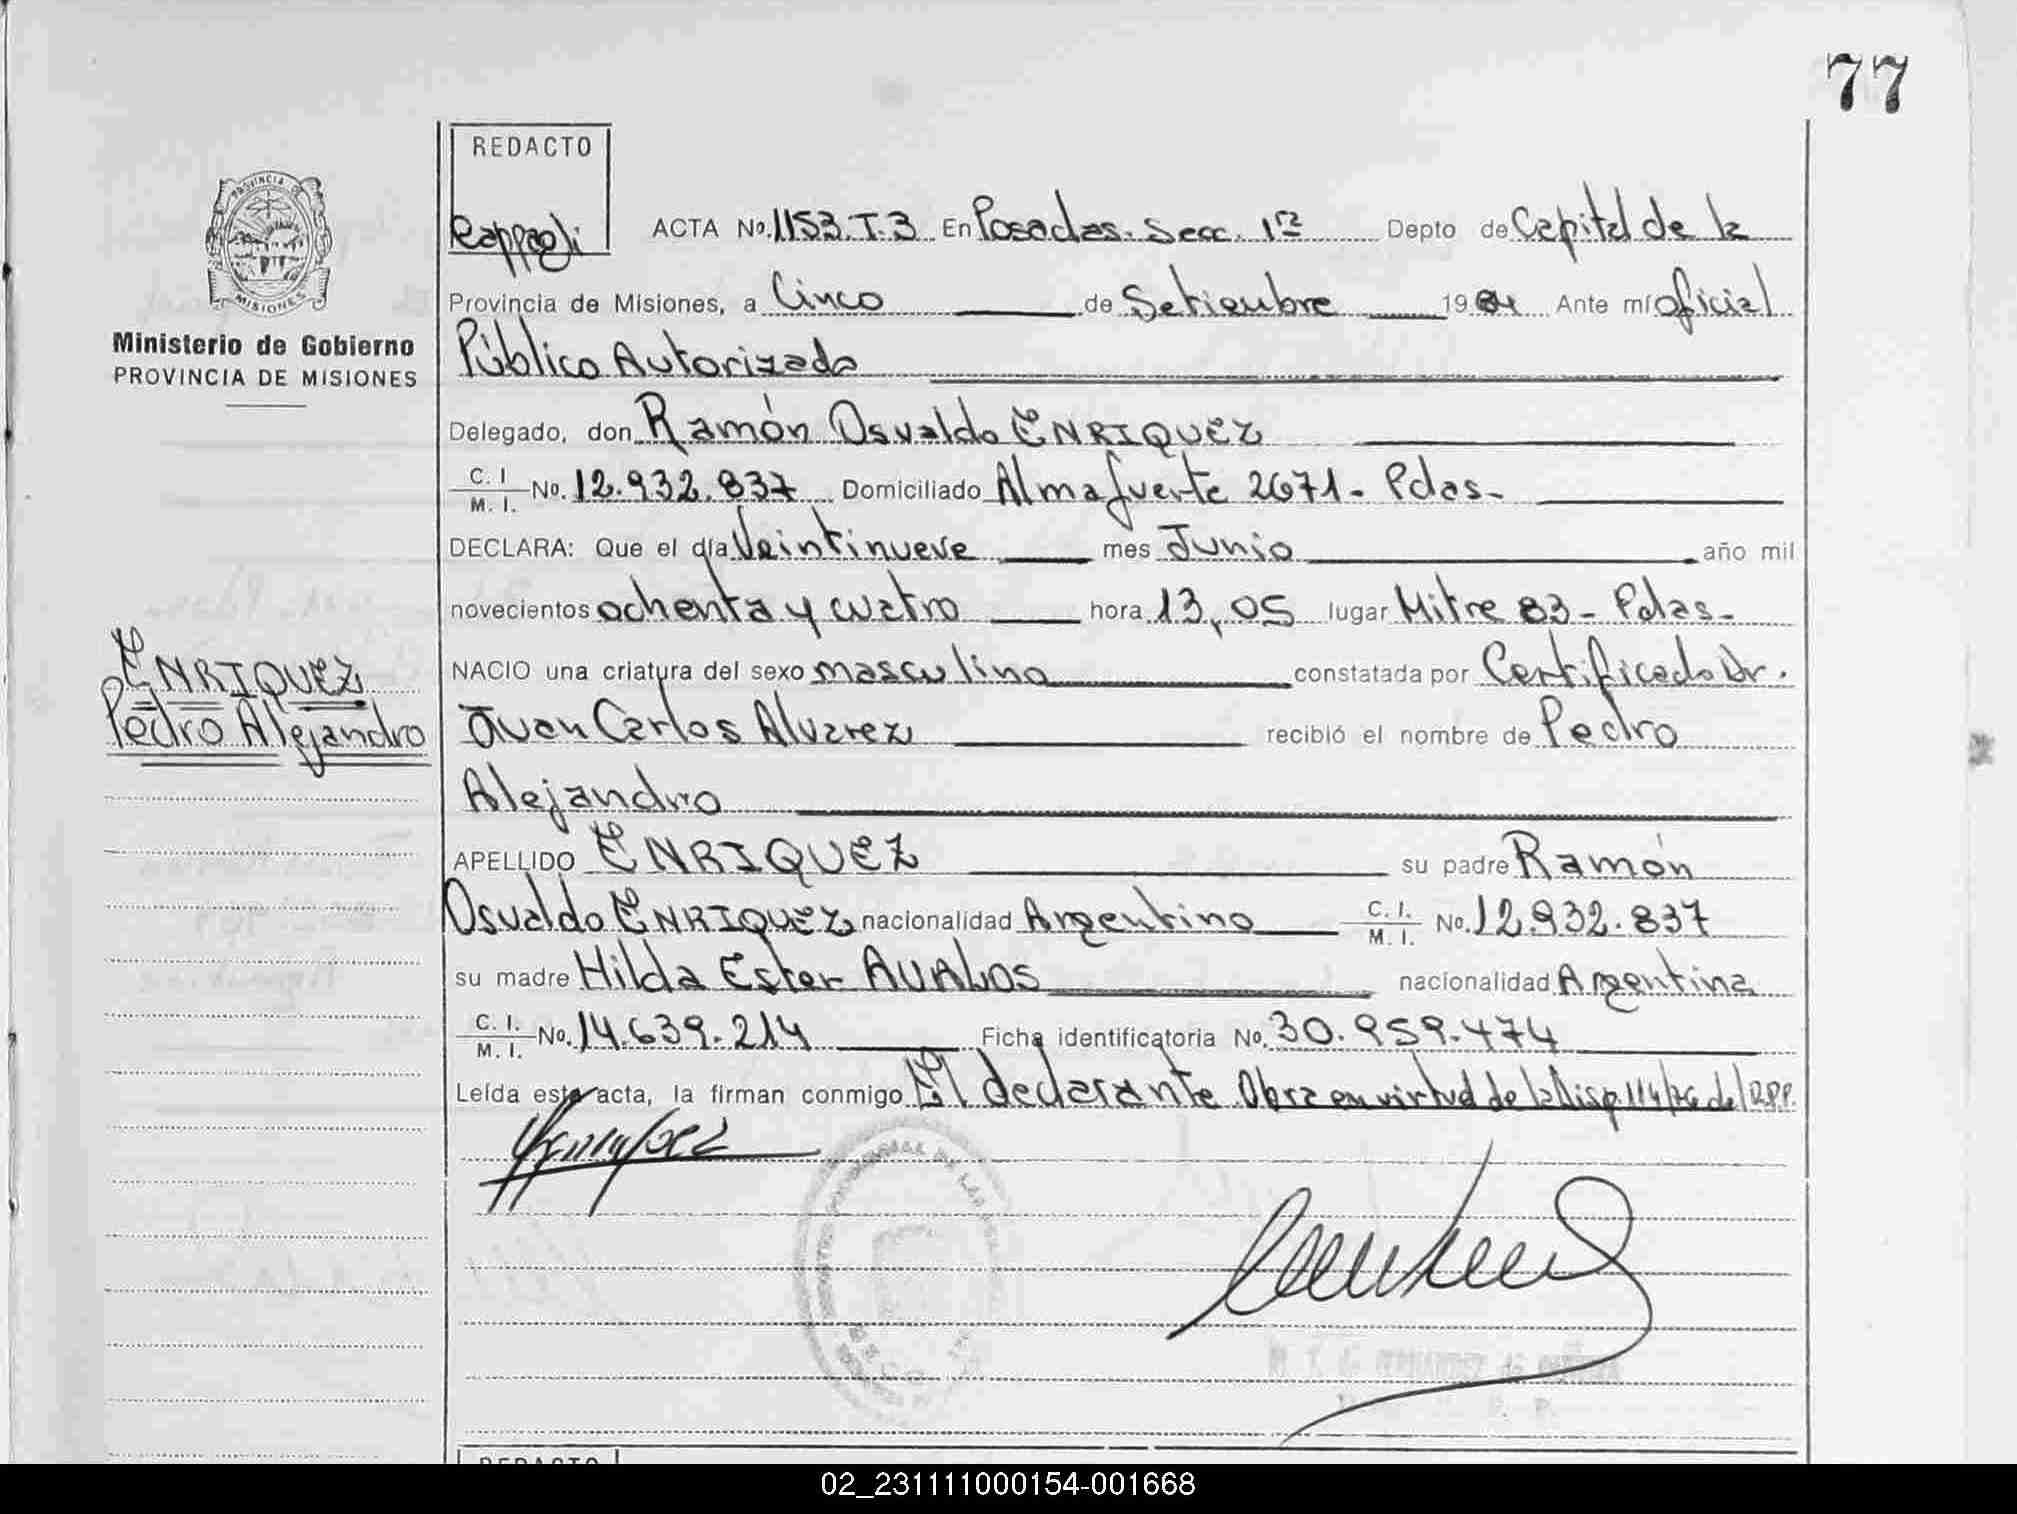 77
REDACTO
Rappagli
ACTA No. 1153. T. 3 En Posadas. Secc. 1ra Depto de Capital de la
Provincia de Misiones, a Cinco de Setiembre 1984 Ante mí oficial
Público Autorizado
PROVINCIA DE
MISIONES
Ministerio de Gobierno
PROVINCIA DE MISIONES
Delegado, don Ramón Osvaldo ENRIQUEZ
C. I. M. I. No. 12.932.837 Domiciliado Almafuerte 2671 - Pdas -
DECLARA: Que el día Veintinueve mes Junio año mil
novecientos ochenta y cuatro hora 13,05 lugar Mitre 83 - Pdas -
NACIO una criatura del sexo masculino constatada por Certificado Dr.
ENRIQUEZ
Pedro Alejandro
Juan Carlos Alvarez recibió el nombre de Pedro
Alejandro
APELLIDO ENRIQUEZ su padre Ramón
Osvaldo ENRIQUEZ nacionalidad Argentino C. I. M. I. No. 12.932.837
su madre Hilda Ester AVALOS nacionalidad Argentina
C. I. M. I. No. 14.639.214 Ficha identificatoria No. 30.959.474
Leída este acta, la firman conmigo El declarante Obra en virtud de la Disp. 114/76 del R.P.P.
REDACTO
02_231111000154-001668